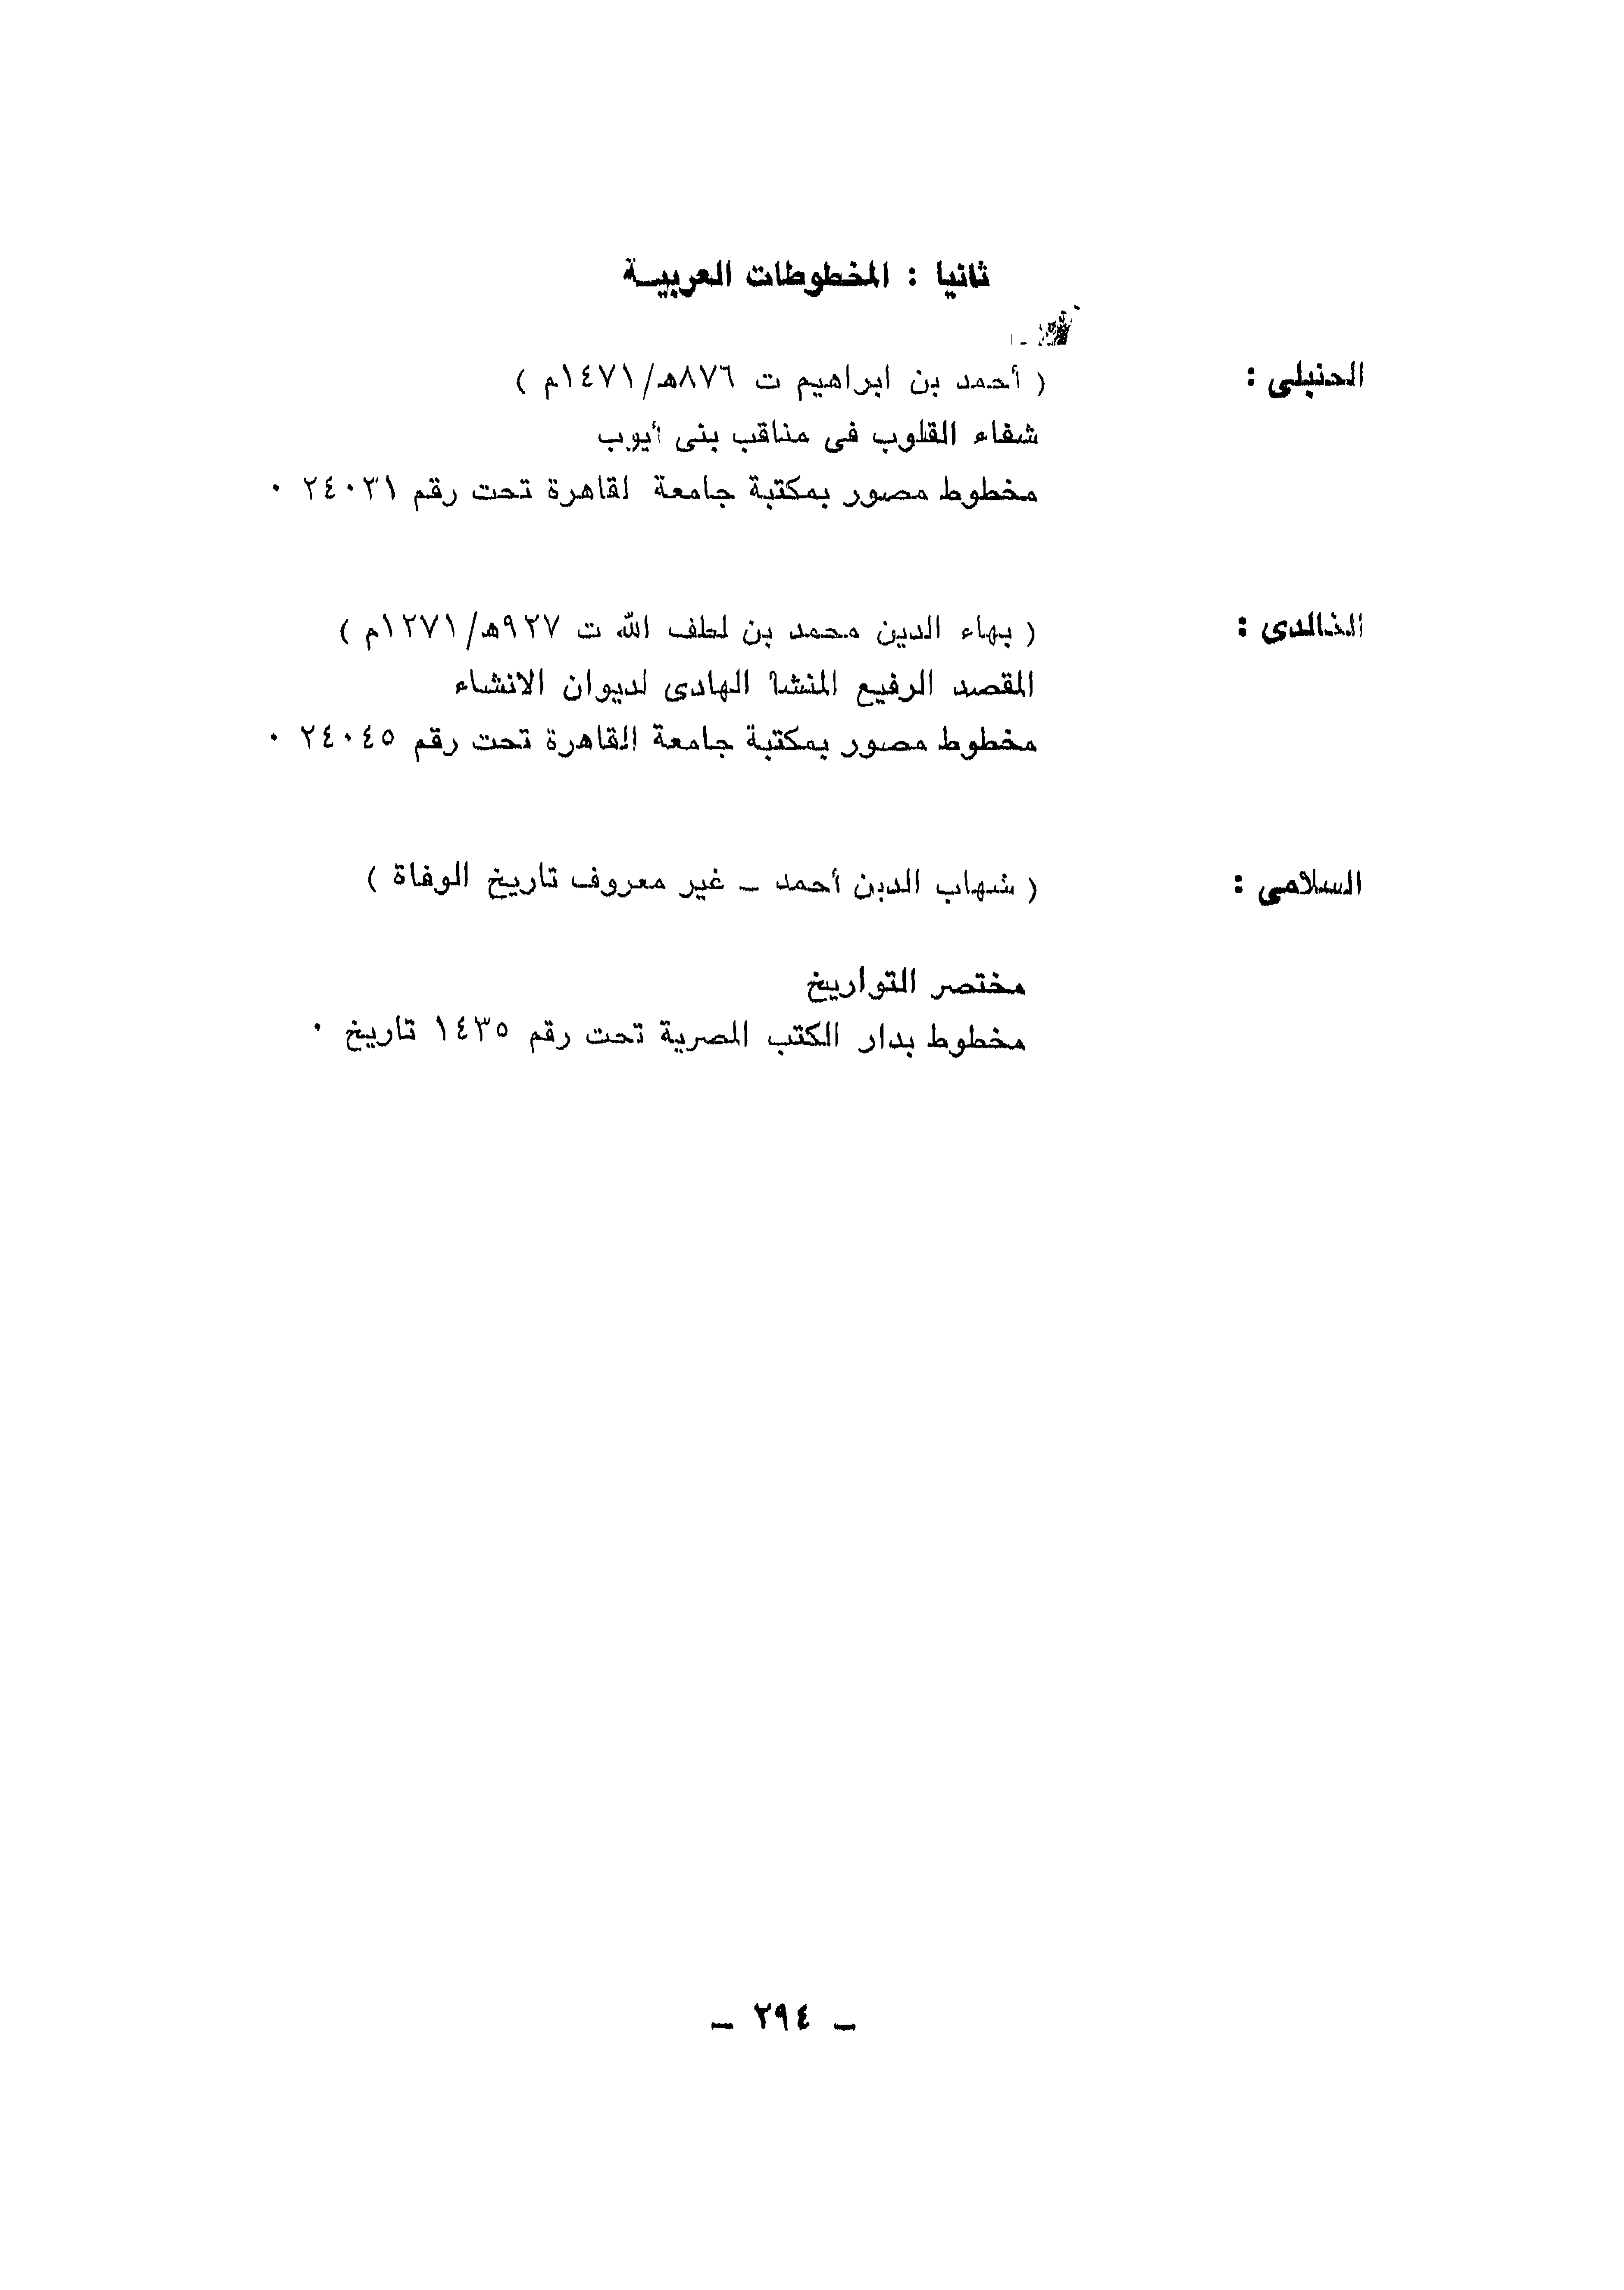 ثانيا : المخطوطات العربيـــة
الحنبلى : ( أحمد بن ابراهيم ت ٨٧٦هـ/١٤٧١م )
شفاء القلوب فى مناقب بنى أيوب
مخطوط مصور بمكتبة جامعة لقاهرة تحت رقم ٢٤٠٣١ ٠
الخالدى : ( بهاء الدين محمد بن لطف الله ت ٩٢٧هـ/١٢٧١م )
المقصد الرفيع المنشا الهادى لديوان الانشاء
مخطوط مصور بمكتبة جامعة القاهرة تحت رقم ٢٤٠٤٥ ٠
السلامى : ( شهاب الدين أحمد ــ غير معروف تاريخ الوفاة )
مختصر التواريخ
مخطوط بدار الكتب المصرية تحت رقم ١٤٣٥ تاريخ ٠
ــ ٢٩٤ ــ